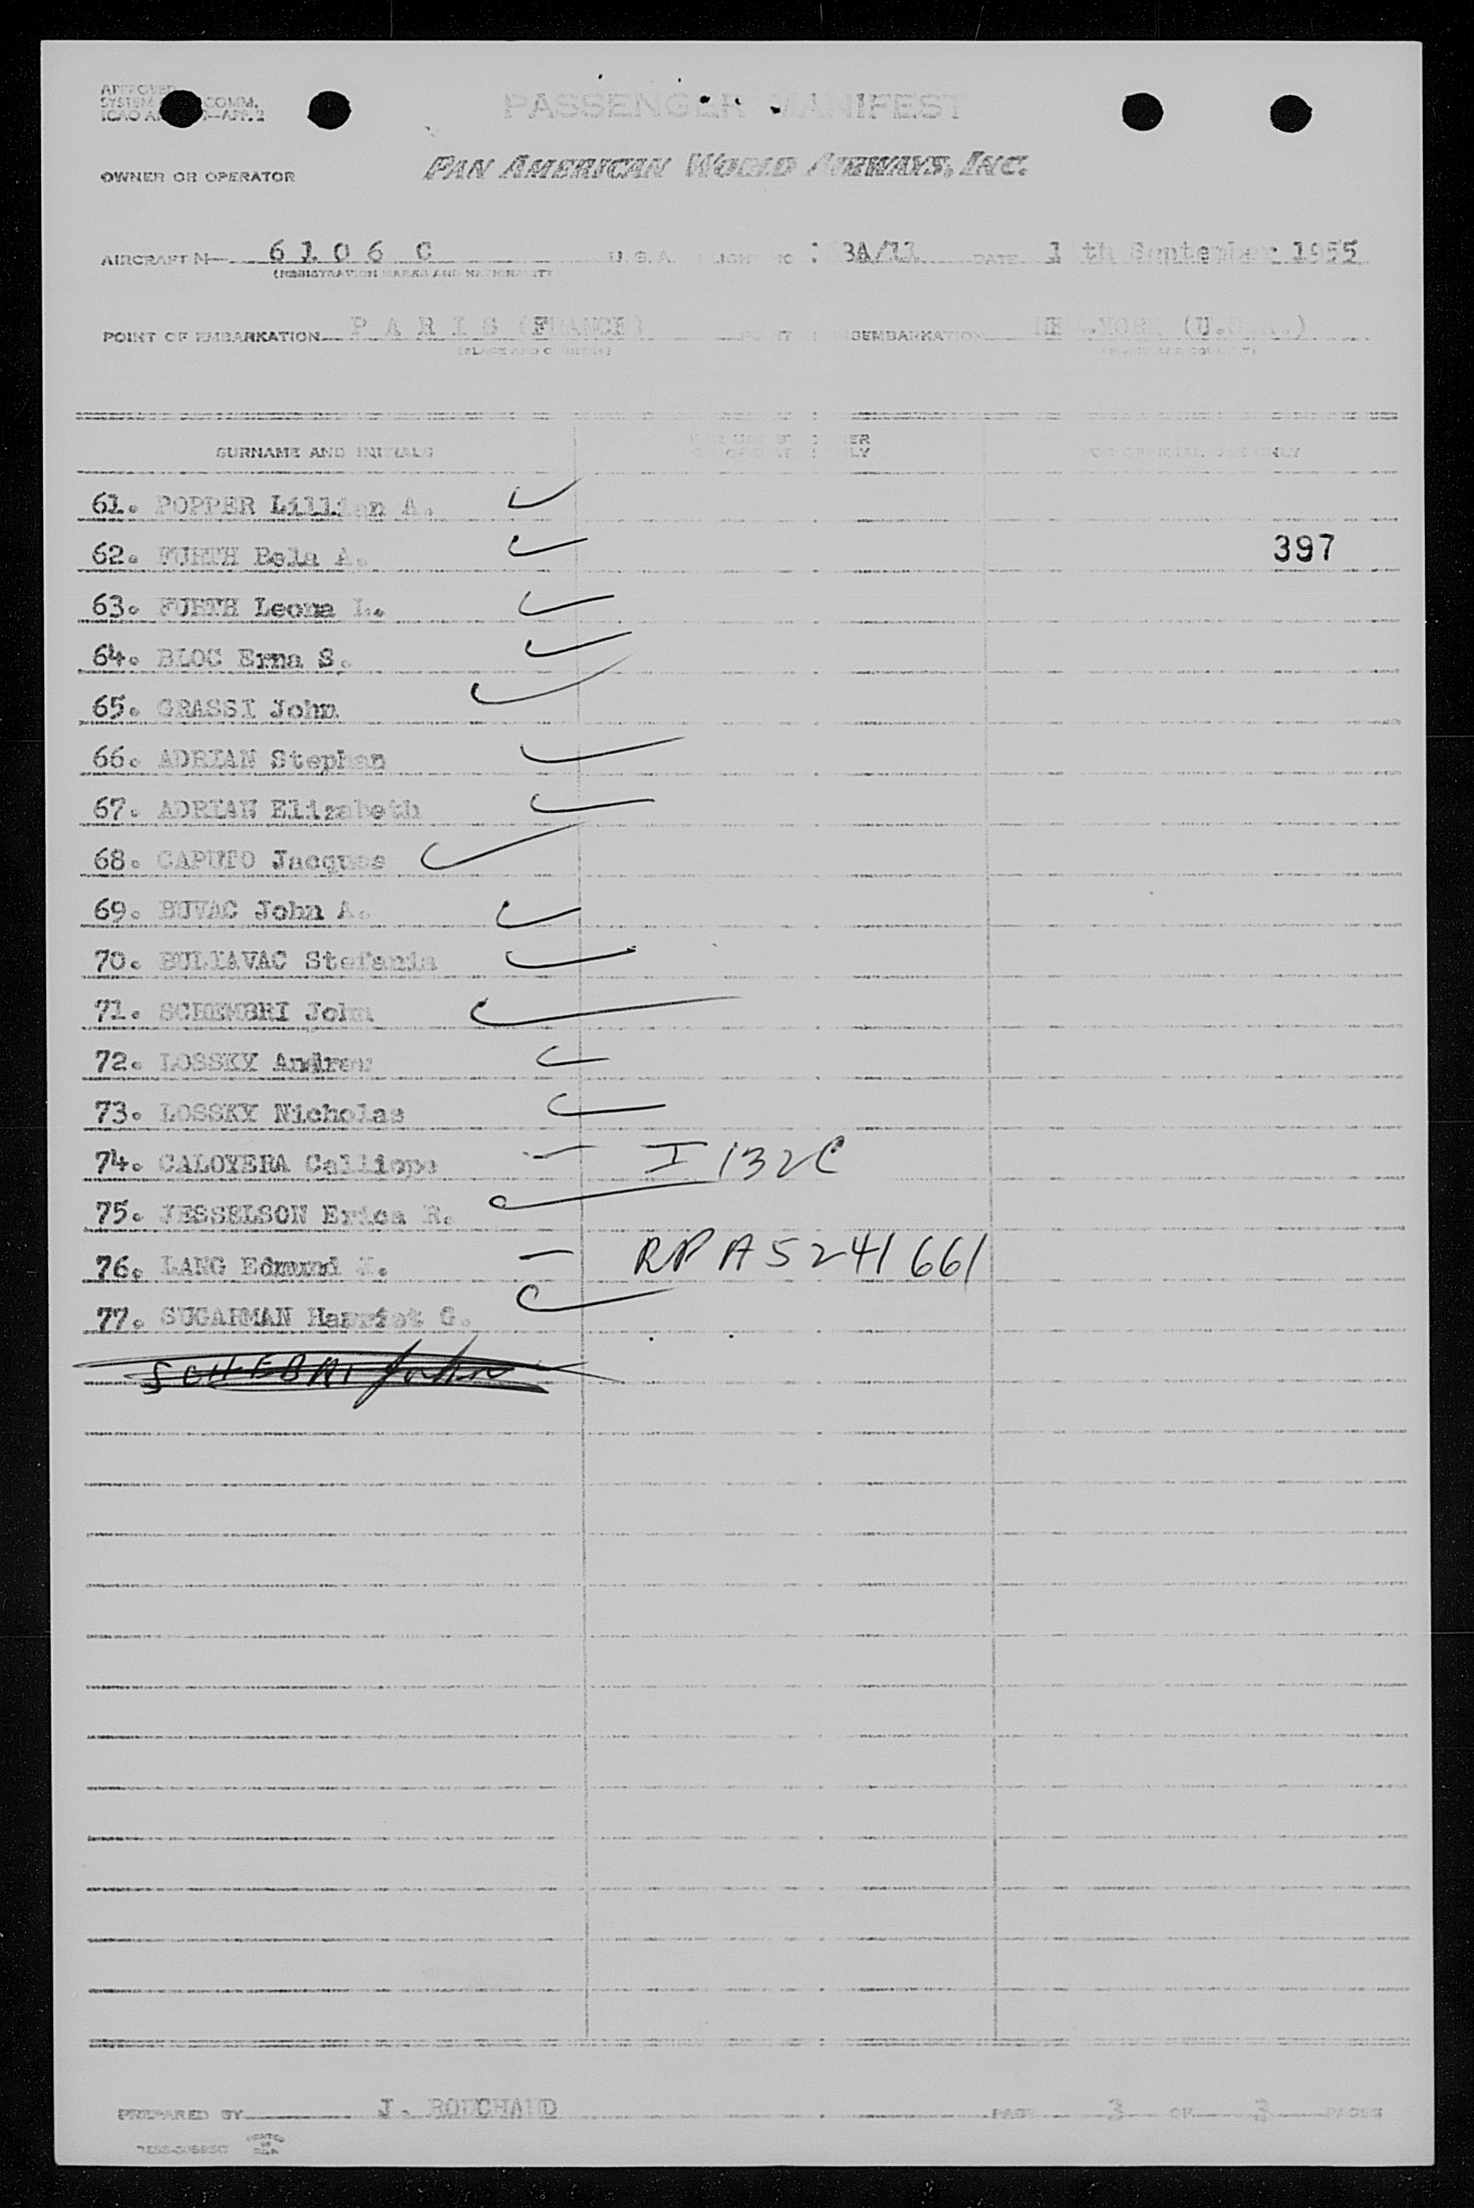 APPROVED
SYSTEM COMM.
ICAO APP. 2
PASSENGER MANIFEST
OWNER OR OPERATOR PAN AMERICAN WORLD AIRWAYS, INC.
AIRCRAFT N 6106 C U.S.A. 3A/11 DATE th September 1955
(REGISTRATION MARKS AND NATIONALITY)
POINT OF EMBARKATION P A R I S (FRANCE) POINT DISEMBARKATION YORK (U.S.A.)
(PLACE AND COUNTRY)
SURNAME AND INITIALS
61. POPPER Lillian A.
62. FURTH Bela A. 397
63. FURTH Leona L.
64. BLOC Erna S.
65. GRASSI John
66. ADRIAN Stephan
67. ADRIAN Elizabeth
68. CAPUTO Jacques
69. BUVAC John A.
70. BULIAVAC Stefania
71. SCHEMBRI John
72. LOSSKY Andrew
73. LOSSKY Nicholas
74. CALOYERA Calliope — I 132C
75. JESSELSON Erica R.
76. LANG Edmund — RP A5241661
77. SUGARMAN Harriet G.
SCHEBRI John
PREPARED BY J. ROUCHAUD PAGE 3 OF 3 PAGES
PRINTED
IN
U.S.A.